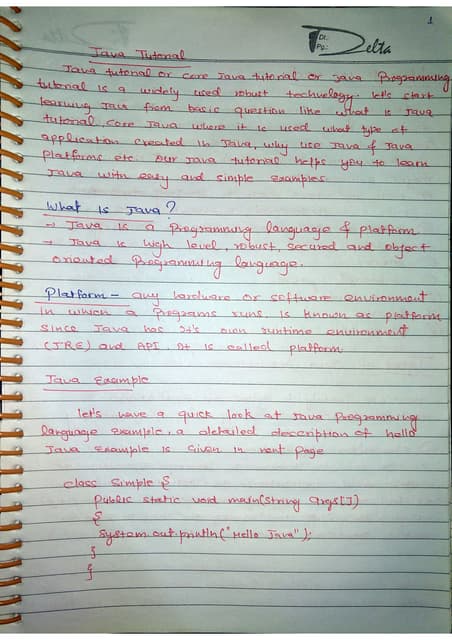 1
Dt.:
Pg.:
Delta
Java Tutorial
Java tutorial or core Java tutorial or java Programming
tutorial is a widely used robust technology. let's start
learning Java from basic question like what is Java
tutorial, core Java where it is used what type of
application created in Java, why use Java & Java
platforms etc. our java tutorial helps you to learn
Java with easy and simple examples.
What is Java?
→ Java is a Programming language & platform
→ Java is high level, robust, secured and object
oriented Programming language.
Platform - any hardware or software environment
in which a Programs runs, is known as platform
since Java has It's own runtime environment
(JRE) and API. It is called platform
Java Example
let's have a quick look at Java Programming
language example. a detailed description of hello
Java example is given in next page
class Simple {
public static void main(String args[])
{
System.out.println("Hello Java");
}
}